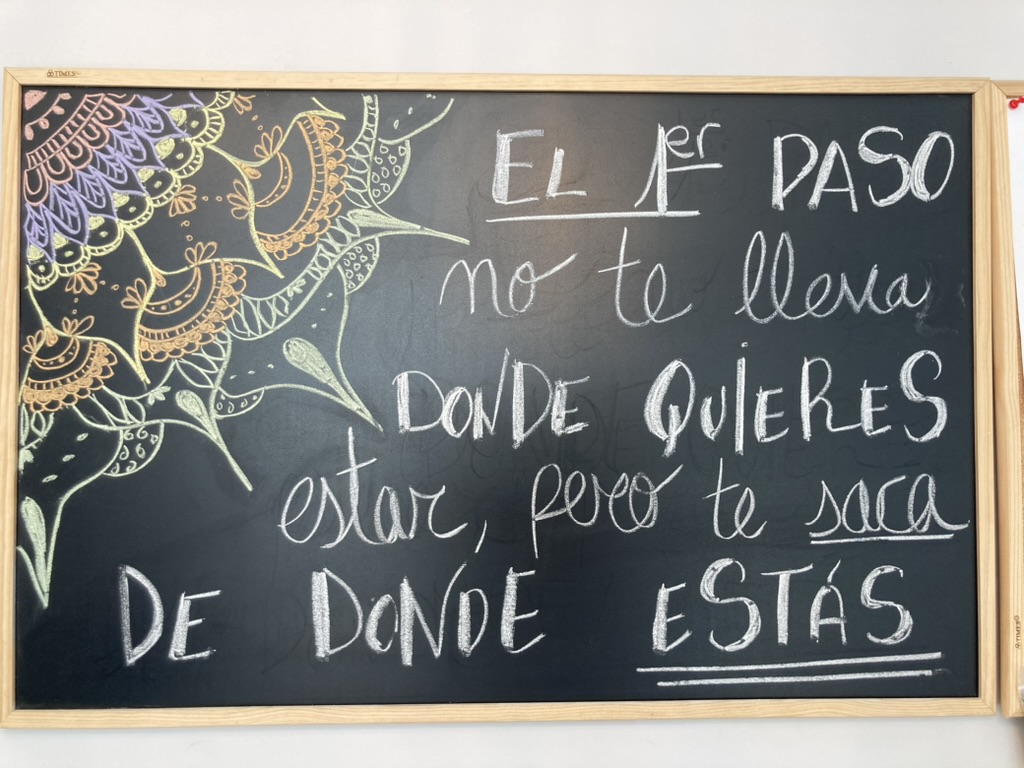 TIMES
EL 1er PASO
no te lleva
DONDE QUIERES
estar, pero te saca
DE DONDE ESTÁS
TIMES